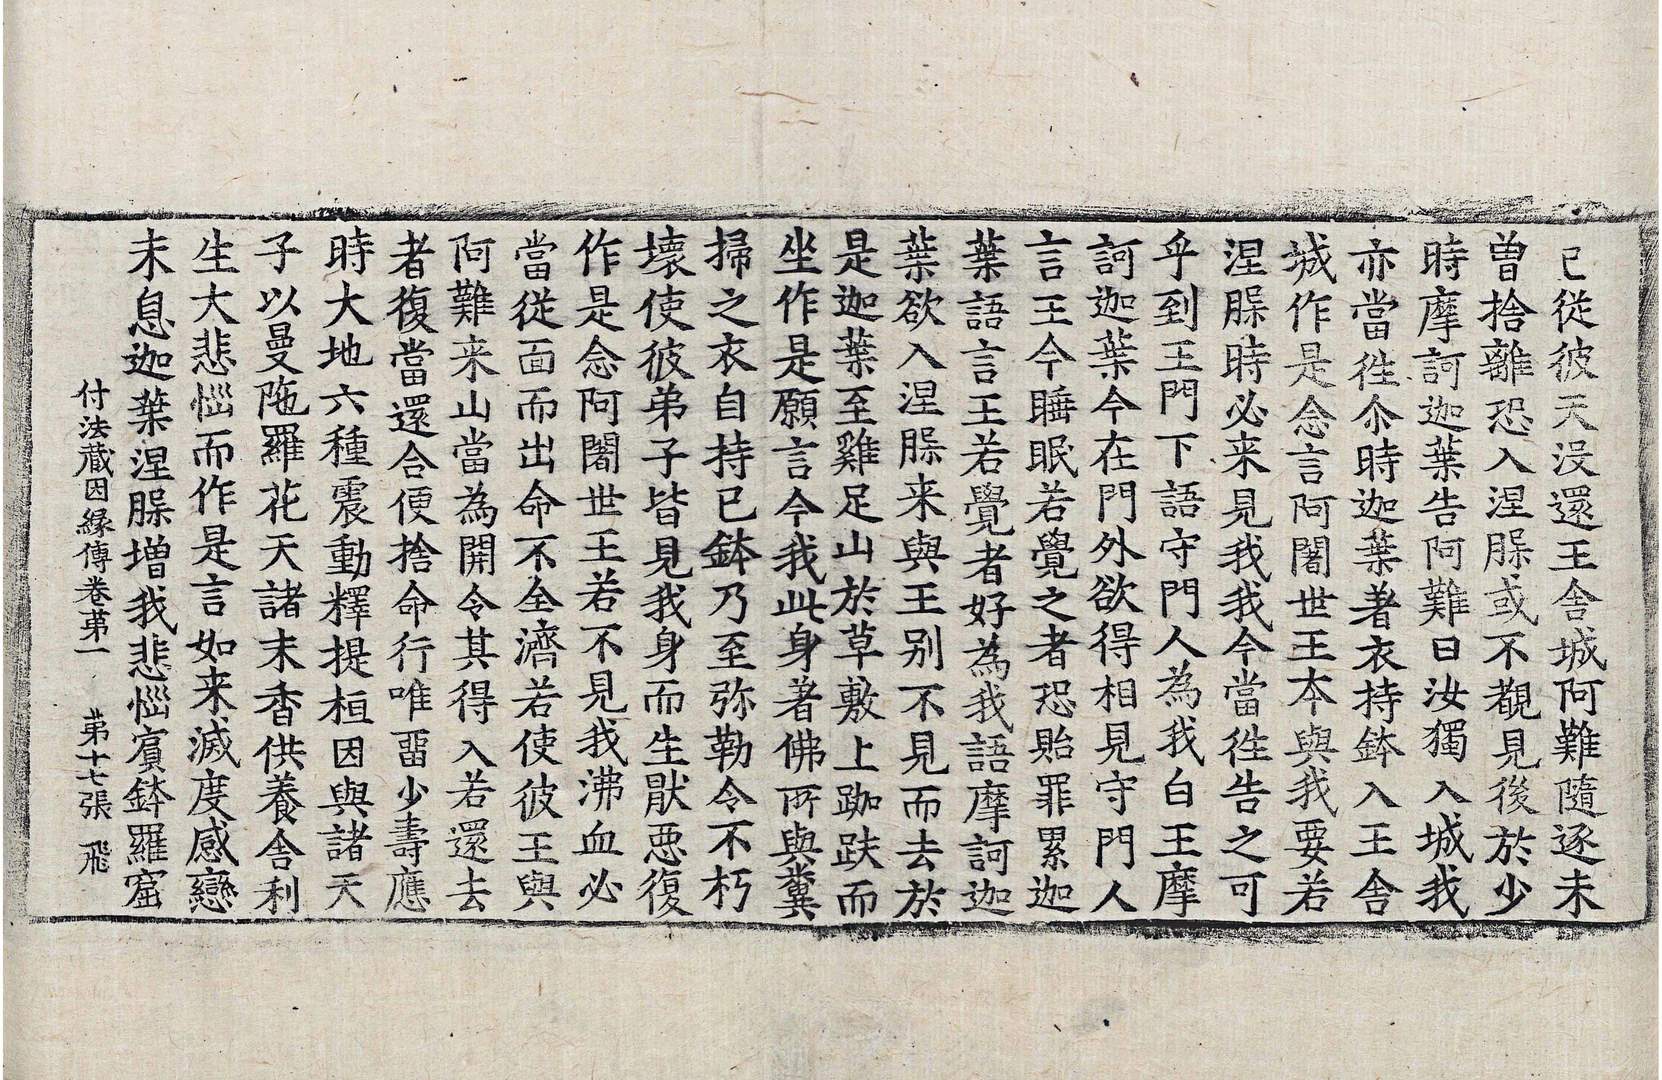 已從彼天没還王舍城阿難隨逐未
曽捨離恐入涅脲或不覩見後於少
時摩訶迦葉告阿難曰汝獨入城我
亦當徃尒時迦葉著衣持鉢入王舍
城作是念言阿闍世王夲與我要若
涅脲時必来見我我今當徃告之可
乎到王門下語守門人為我白王摩
訶迦葉今在門外欲得相見守門人
言王今睡眠若覺之者恐貽罪累迦
葉語言王若覺者好為我語摩訶迦
葉欲入涅脲来與王别不見而去於
是迦葉至雞足山於草敷上跏趺而
坐作是願言今我此身著佛所與糞
掃之衣自持已鉢乃至弥勒令不朽
壞使彼弟子皆見我身而生猒悪復
作是念阿闍世王若不見我沸血必
當從面而出命不全濟若使彼王與
阿難来山當為開令其得入若還去
者復當還合便捨命行唯畱少壽應
時大地六種震動釋提桓因與諸天
子以曼陁羅花天諸末香供養舍利
生大悲惱而作是言如来滅度感戀
未息迦葉涅脲増我悲惱賔鉢羅窟
付法藏因縁傳卷苐一 苐十七張 飛